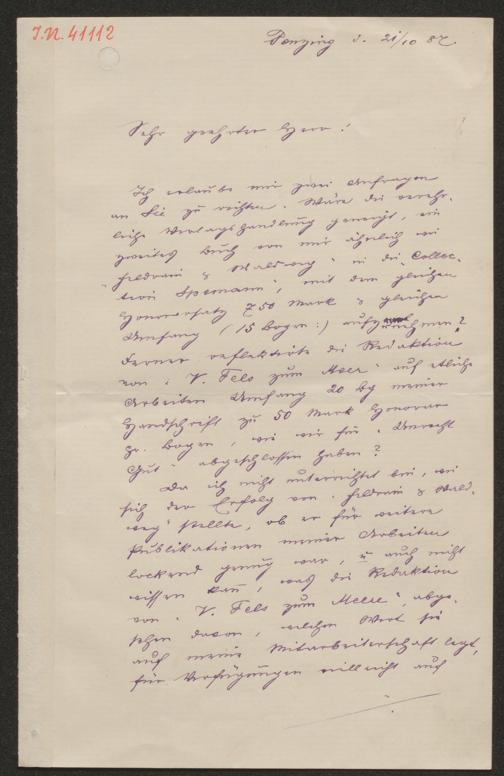 I.N. 41112
Penzing d. 21/10 87.
Sehr geehrter Herr!
Ich erlaube mir zwei Anfragen
an Sie zu richten. Wäre die verehr-
liche Verlagshandlung geneigt, ein
zweites Buch von mir ähnlich wie
"Feldrain & Waldweg" in die Collec-
tion Spemann, mit dem gleichen
Honorarsatz 750 Mark & gleichen
Umfang (15 Bogen:) aufzunehmen?
Ferner reflektirte die Redaktion
von: "V. Fels zum Meer" auf etliche
Arbeiten Umfang 20 bg meiner
Handschrift zu 50 Mark Honorar
pr. Bogen, wie wir für "Unrecht
Gut" abgeschlossen haben?
Da ich nicht unterrichtet bin, wie
sich der Erfolg von "Feldrain & Wald-
weg" stellte, ob er für weitere
Publikationen meiner Arbeiten
lockend genug war, u auch nicht
wissen kann, was die Redaktion
von "V. Fels zum Meere", abge-
sehen davon, welchen Wert sie
auf meine Mitarbeiterschaft legt,
für Verfügungen vielleicht auf